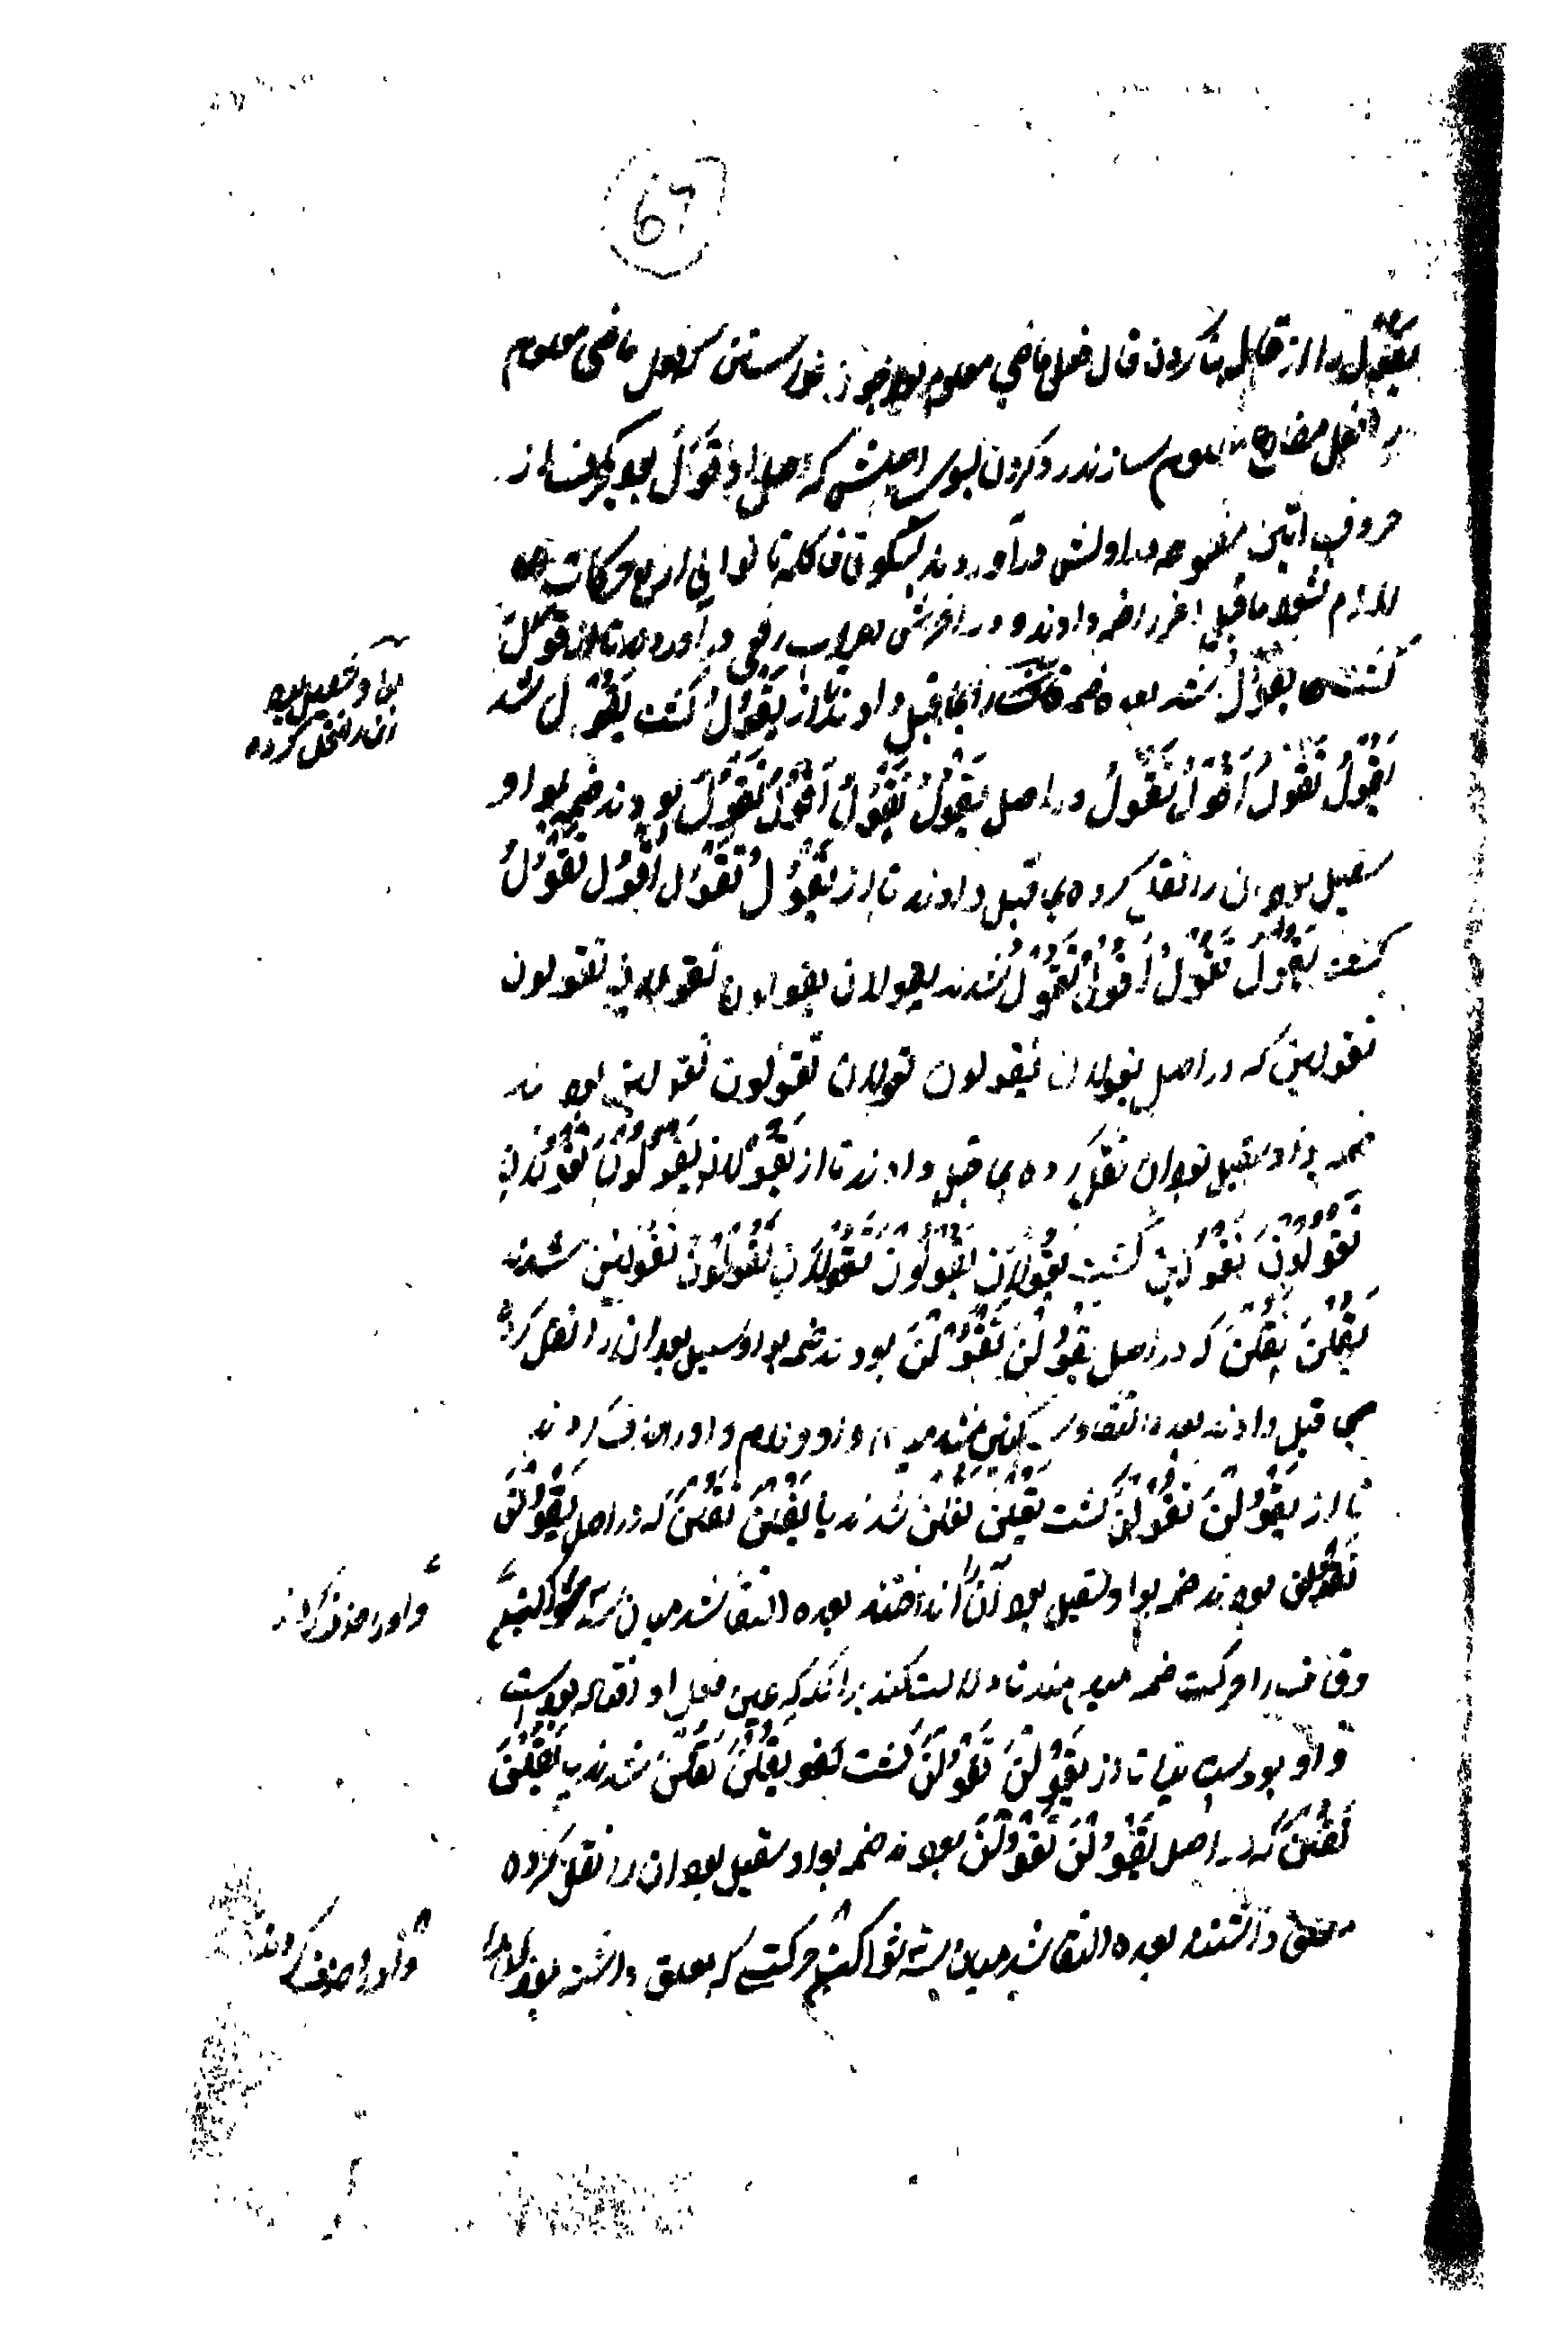 67
يَقُوْلُ را از قال بنا کردن قال فعل ماضی معلوم بود چون خواستن که فعل ماضی معلوم
را فعل مضارع معلوم سازند رد کردن بسوی اصلش که اصل او قَوَلَ بود
حروف اتین مفتوحه در اولش درآوردند بسکون ف کلمه تا توالی اربع حرکات
لازم نشود ما قبل اخر را ضمه دادند و در اخرش اعراب رفعی درآوردند تا از قَوَلَ
گشت يَقْوُلُ شد بعده ضمه را بما قبل دادند تا از يَقْوُلُ گشت يَقُوْلُ شد
بواو ثقیل بود
آن را نقل کرده
يَقُوْلُ تَقُوْلُ اَقُوْلُ نَقُوْلُ در اصل يَقْوُلُ تَقْوُلُ اَقْوُلُ نَقْوُلُ بودند ضمه بواو
ثقیل بود آن را نقل کرده بما قبل دادند تا از يَقْوُلُ تَقْوُلُ اَقْوُلُ نَقْوُلُ
گشت يَقُوْلُ تَقُوْلُ اَقُوْلُ نَقُوْلُ شدند يقولان يقولون تقولان تقولون
تقولين که در اصل يقولان يقولون تقولان تقولون تقولين بودند
ضمه بواو ثقیل بود ان نقل کرده بما قبل دادند تا از يَقْوُلَانِ يَقْوُلُوْنَ تَقْوُلَانِ
تَقْوُلُوْنَ تَقْوُلِيْنَ گشت يَقُوْلَانِ يَقُوْلُوْنَ تَقُوْلَانِ تَقُوْلُوْنَ تَقُوْلِيْنَ شدند
يَقُلْنَ تَقُلْنَ که در اصل يَقْوُلْنَ تَقْوُلْنَ بودند ضمه بواو ثقیل بود ان را نقل کرده
بما قبل دادند بعده التقاء ساکنین شد میان واو و لام واو را حذف کردند
تا از يَقْوُلْنَ تَقْوُلْنَ گشت يَقُلْنَ تَقُلْنَ شدند يا يَقُلْنَ تَقُلْنَ که در اصل يَقْوُلْنَ
تَقْوُلْنَ بودند ضمه بواو ثقیل بود آن را انداختند بعده التقا شد میان سه سواکن
واو را حذف کردند
وقاف را حرکت ضمه دادند تا دلالت کند برانکه عین فعل او
واو بودست تا از يَقْوُلْنَ تَقْوُلْنَ گشت يَقُلْنَ تَقُلْنَ شدند يا يَقُلْنَ
تَقُلْنَ که در اصل يَقْوُلْنَ تَقْوُلْنَ بودند ضمه بواو ثقیل بود ان را نقل کرده
معلق داشتند بعده التقا شد میان سه سواکن حرکتی که معلق داشته بودند
واو را حذف کردند